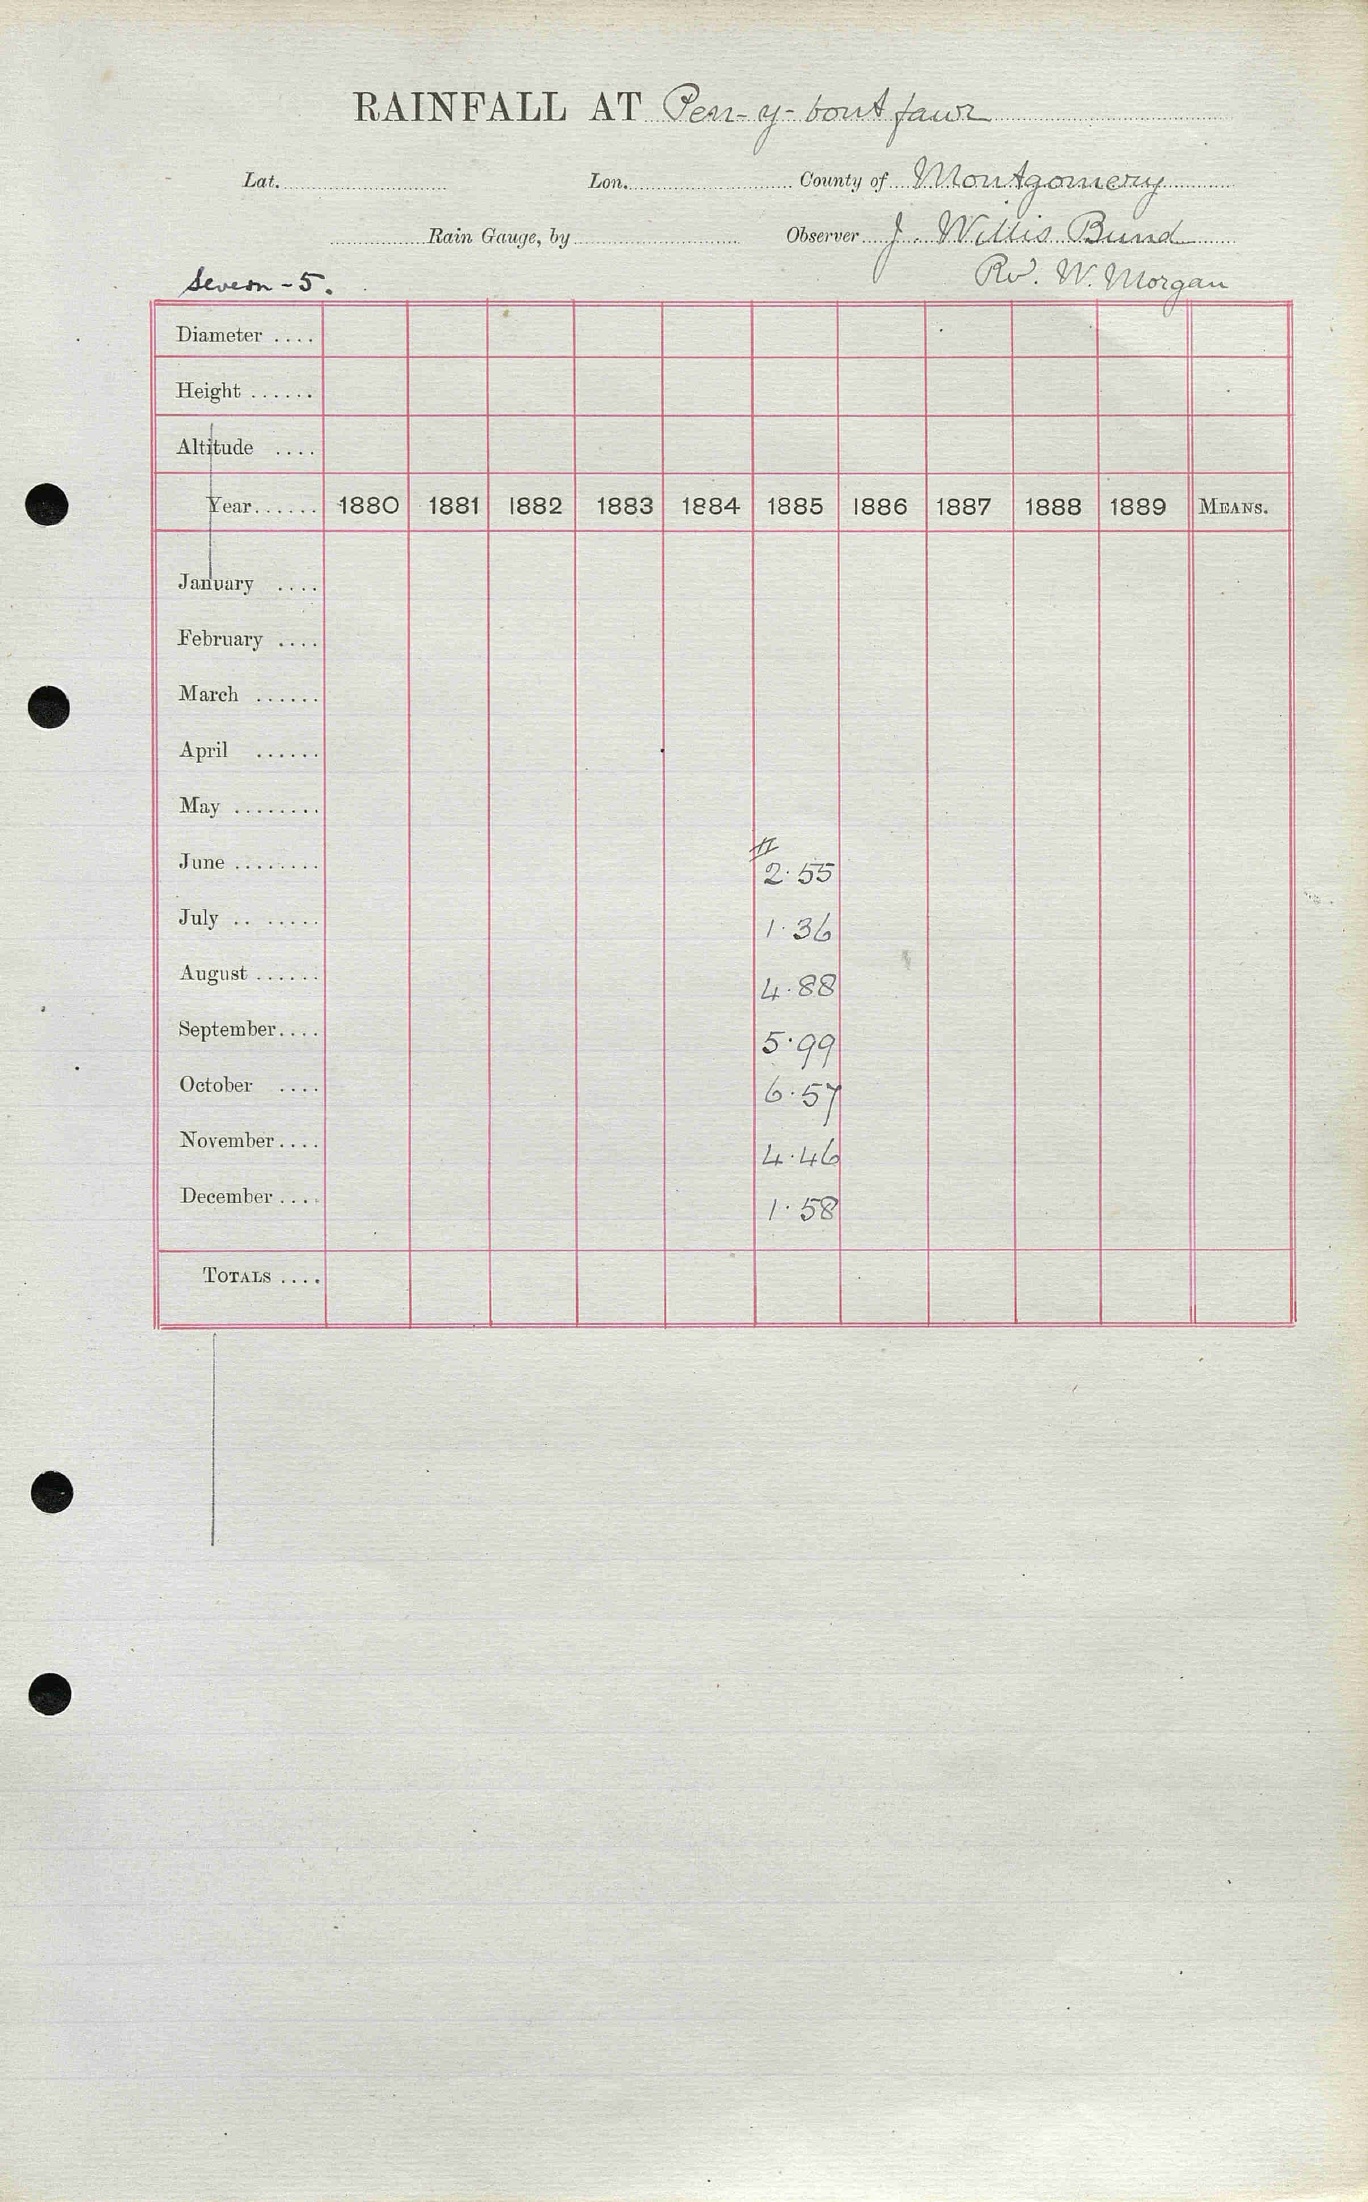 RAINFALL AT Pen-y-bont fawr
Lat. Lon. County of Montgomery
Rain Gauge, by Observer J. Willis Bund
Severn - 5. Rev. W. Morgan
Diameter ....
Height ......
Altitude ....
Year ...... 1880 1881 1882 1883 1884 1885 1886 1887 1888 1889 MEANS.
January ....
February ....
March ......
April ......
May ........
June ........ 2.55
July .. ..... 1.36
August ...... 4.88
September.... 5.99
October .... 6.57
November.... 4.46
December .... 1.58
TOTALS ....